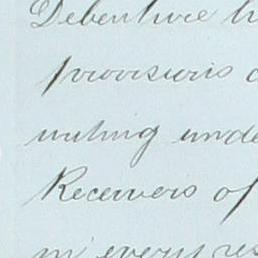 Debenture h
provisions o
writing unde
Receivers of
in every res